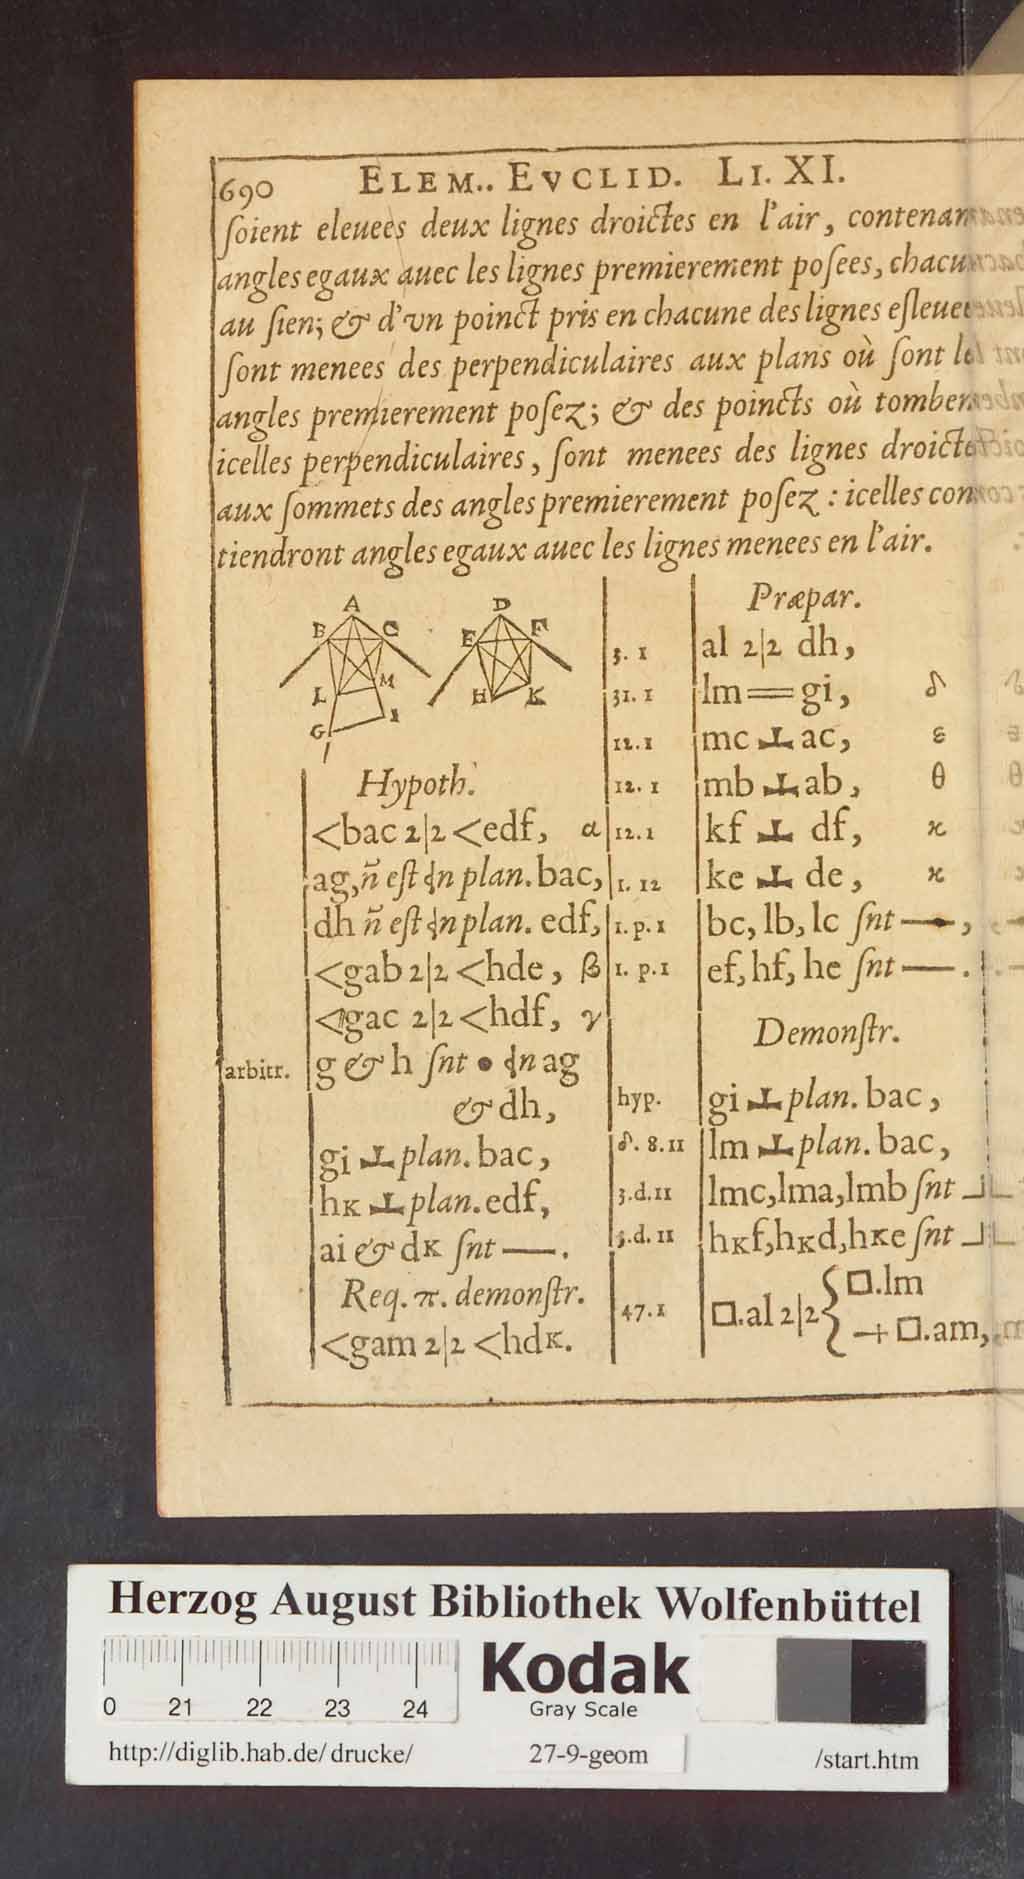 690 ELEM.. EVCLID. LI. XI.
ſoient eleuees deux lignes droictes en l'air, contenan
angles egaux auec les lignes premierement poſees, chacun
au ſien; & d'vn poinct pris en chacune des lignes eſleuees
ſont menees des perpendiculaires aux plans où ſont le
angles premierement poſez; & des poincts où tomben
icelles perpendiculaires, ſont menees des lignes droicte
aux ſommets des angles premierement poſez : icelles con
tiendront angles egaux auec les lignes menees en l'air.
A
B C
L M
G I
D
E F
H K
Hypoth.
<bac 2|2 <edf, α
ag, ñ eſt in plan. bac,
dh ñ eſt in plan. edf,
<gab 2|2 <hde, β
<gac 2|2 <hdf, γ
arbitr. g & h ſnt • in ag
& dh,
gi ⊥ plan. bac,
hK ⊥ plan. edf,
ai & dK ſnt —.
Req. π. demonſtr.
<gam 2|2 <hdK.
Præpar.
3. 1 al 2|2 dh,
31. 1 lm = gi, δ
12. 1 mc ⊥ ac, ε
12. 1 mb ⊥ ab, θ
12. 1 kf ⊥ df, ϰ
1. 12 ke ⊥ de, ϰ
1. p. 1 bc, lb, lc ſnt —,
1. p. 1 ef, hf, he ſnt —.
Demonſtr.
hyp. gi ⊥ plan. bac,
δ. 8. 11 lm ⊥ plan. bac,
3. d. 11 lmc, lma, lmb ſnt ⅃
3. d. 11 hKf, hKd, hKe ſnt ⅃
47. 1 □.al 2|2 { □.lm
+ □.am,
Herzog August Bibliothek Wolfenbüttel
0 21 22 23 24
Kodak
Gray Scale
http://diglib.hab.de/drucke/ 27-9-geom /start.htm